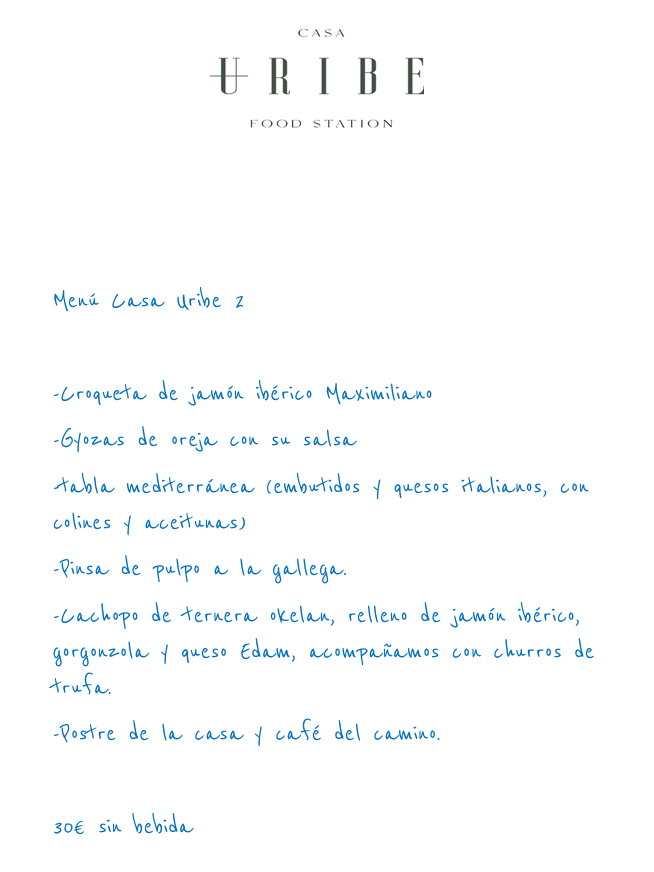 CASA
URIBE
FOOD STATION
Menú Casa Uribe 2
-Croqueta de jamón ibérico Maximiliano
-Gyozas de oreja con su salsa
tabla mediterránea (embutidos y quesos italianos, con
colines y aceitunas)
-Pinsa de pulpo a la gallega.
-Cachopo de ternera okelan, relleno de jamón ibérico,
gorgonzola y queso Edam, acompañamos con churros de
trufa.
-Postre de la casa y café del camino.
30€ sin bebida